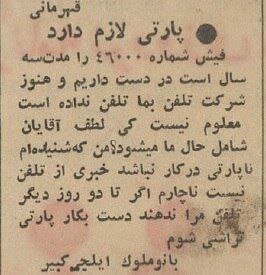 قهرمانی
● پارتی لازم دارد
فیش شماره ۴۶۰۰۰ را مدت‌سه
سال است در دست داریم و هنوز
شرکت تلفن بما تلفن نداده است
معلوم نیست کی لطف آقایان
شامل حال ما میشود؟من که‌شنیده‌ام
تاپارتی درکار نباشد خبری از تلفن
نیست ناچارم اگر تا دو روز دیگر
تلفن مرا ندهند دست بکار پارتی
تراشی شوم
بانوملوك ایلچی‌کبیر